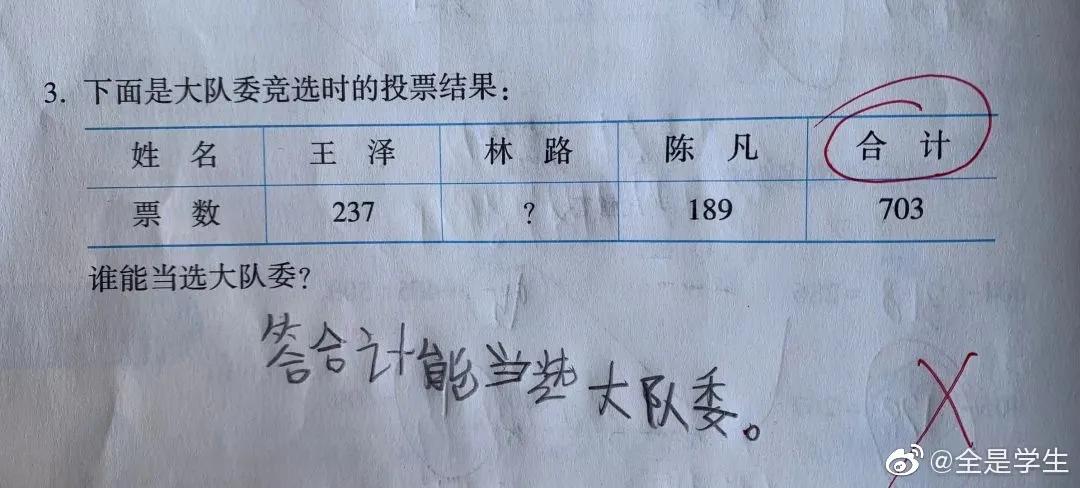 3. 下面是大队委竞选时的投票结果：
姓 名 王 泽 林 路 陈 凡 合 计
票 数 237 ? 189 703
谁能当选大队委?
答合计能当选大队委。
@全是学生